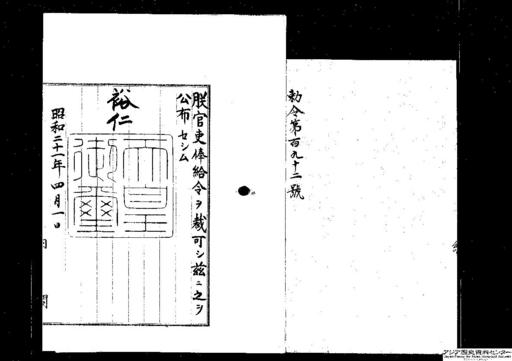 勅令第百九十二號
朕官吏俸給令ヲ裁可シ茲ニ之ヲ
公布セシム
裕仁
天皇
御璽
昭和二十一年四月一日
アジア歴史資料センター